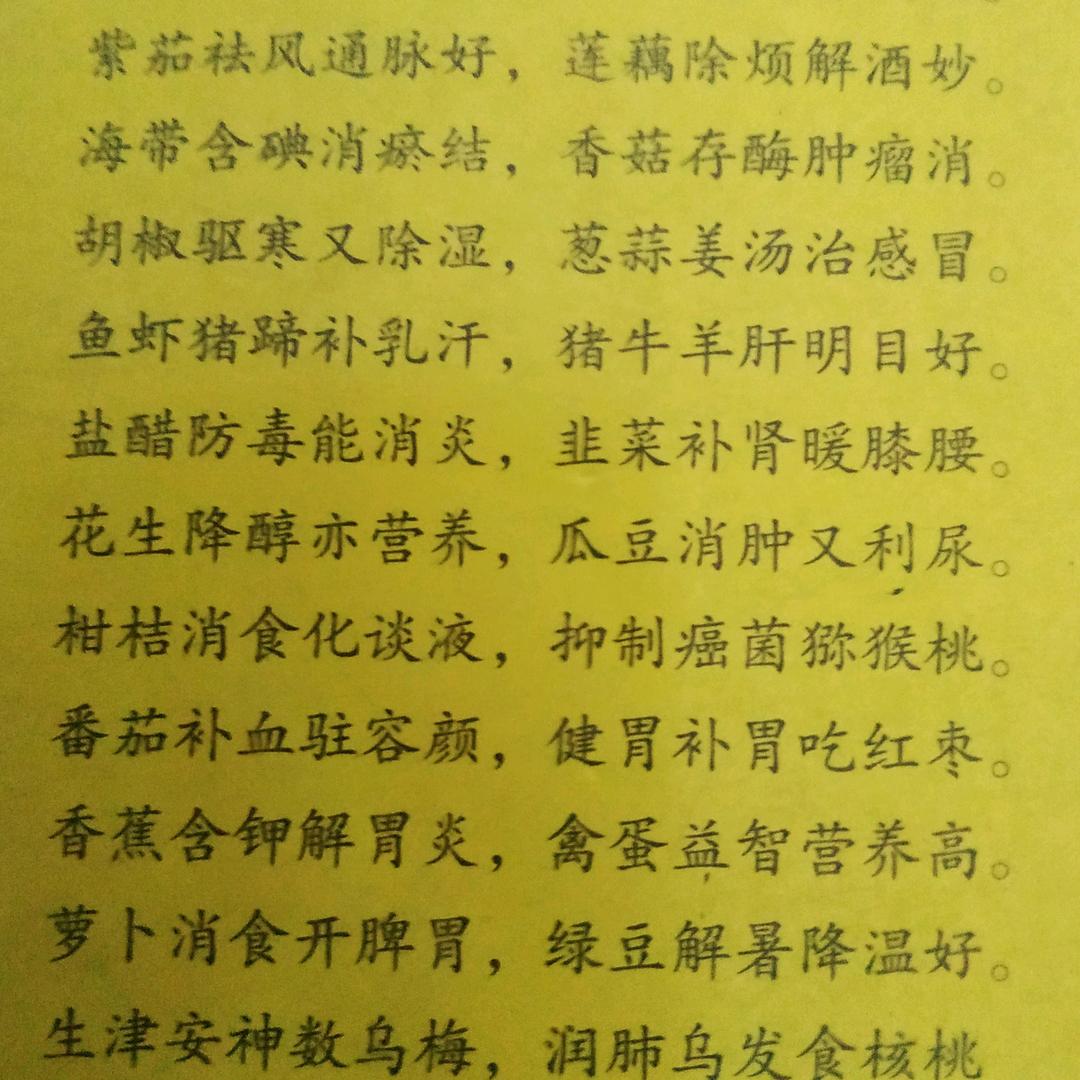 紫茄祛风通脉好，莲藕除烦解酒妙。
海带含碘消瘀结，香菇存酶肿瘤消。
胡椒驱寒又除湿，葱蒜姜汤治感冒。
鱼虾猪蹄补乳汗，猪牛羊肝明目好。
盐醋防毒能消炎，韭菜补肾暖膝腰。
花生降醇亦营养，瓜豆消肿又利尿。
柑桔消食化谈液，抑制癌菌猕猴桃。
番茄补血驻容颜，健胃补胃吃红枣。
香蕉含钾解胃炎，禽蛋益智营养高。
萝卜消食开脾胃，绿豆解暑降温好。
生津安神数乌梅，润肺乌发食核桃